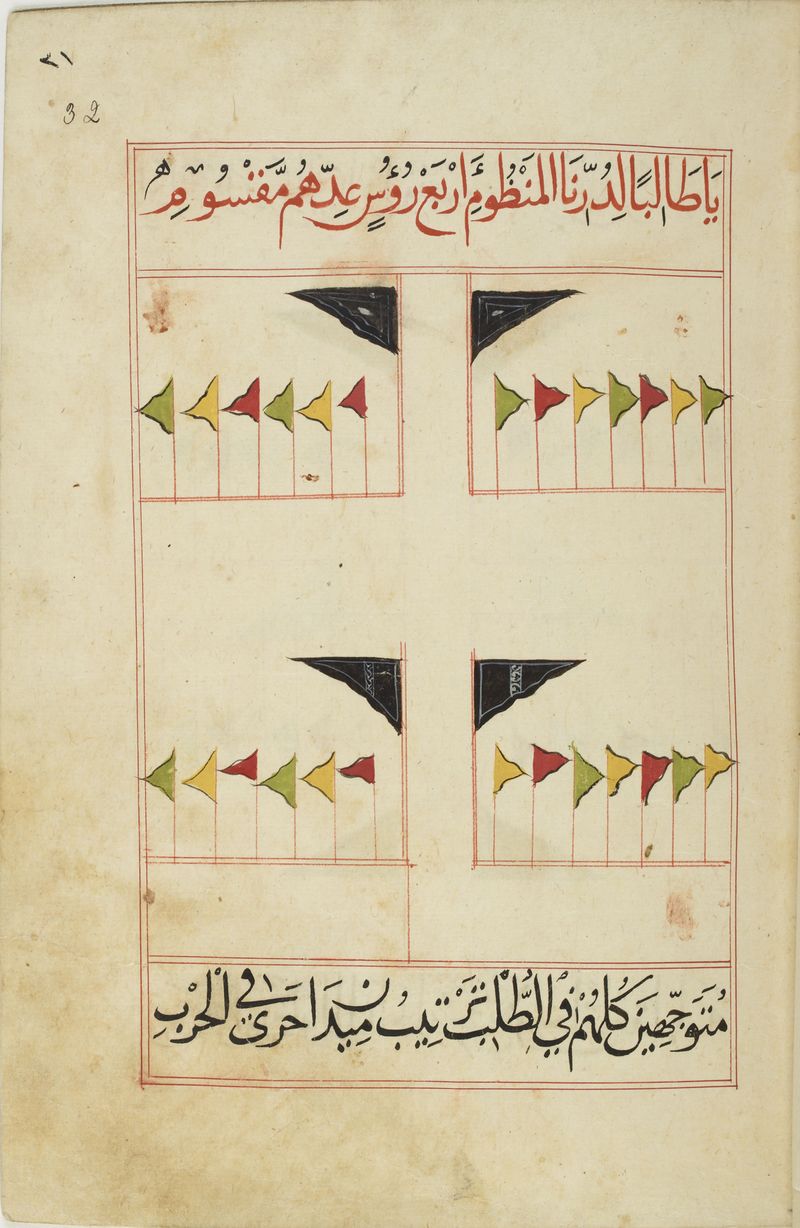 ٣١
32
يَا طَالِبًا لِدُرِّنَا المَنْظُومِ أَرْبَعْ رُؤُسٍ عِدّهُمْ مَقْسُومِ
مُتَوَجِّهِينَ كُلُهُمْ فِي الطَّلَبْ تَرْتِيبُ مِيْدَانِ اخَرَى فِي الْحَرْبِ